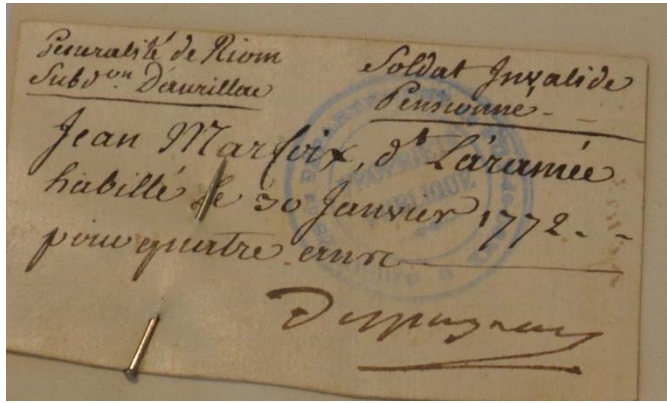 Généralité de Riom
Subd.on D'aurillac
Soldat Invalide
Pensionné
Jean Marfoix, dt Laramée
habillé le 30 Janvier 1772
pour quatre ans
PROPRIÉTÉ
PUBLIQUE